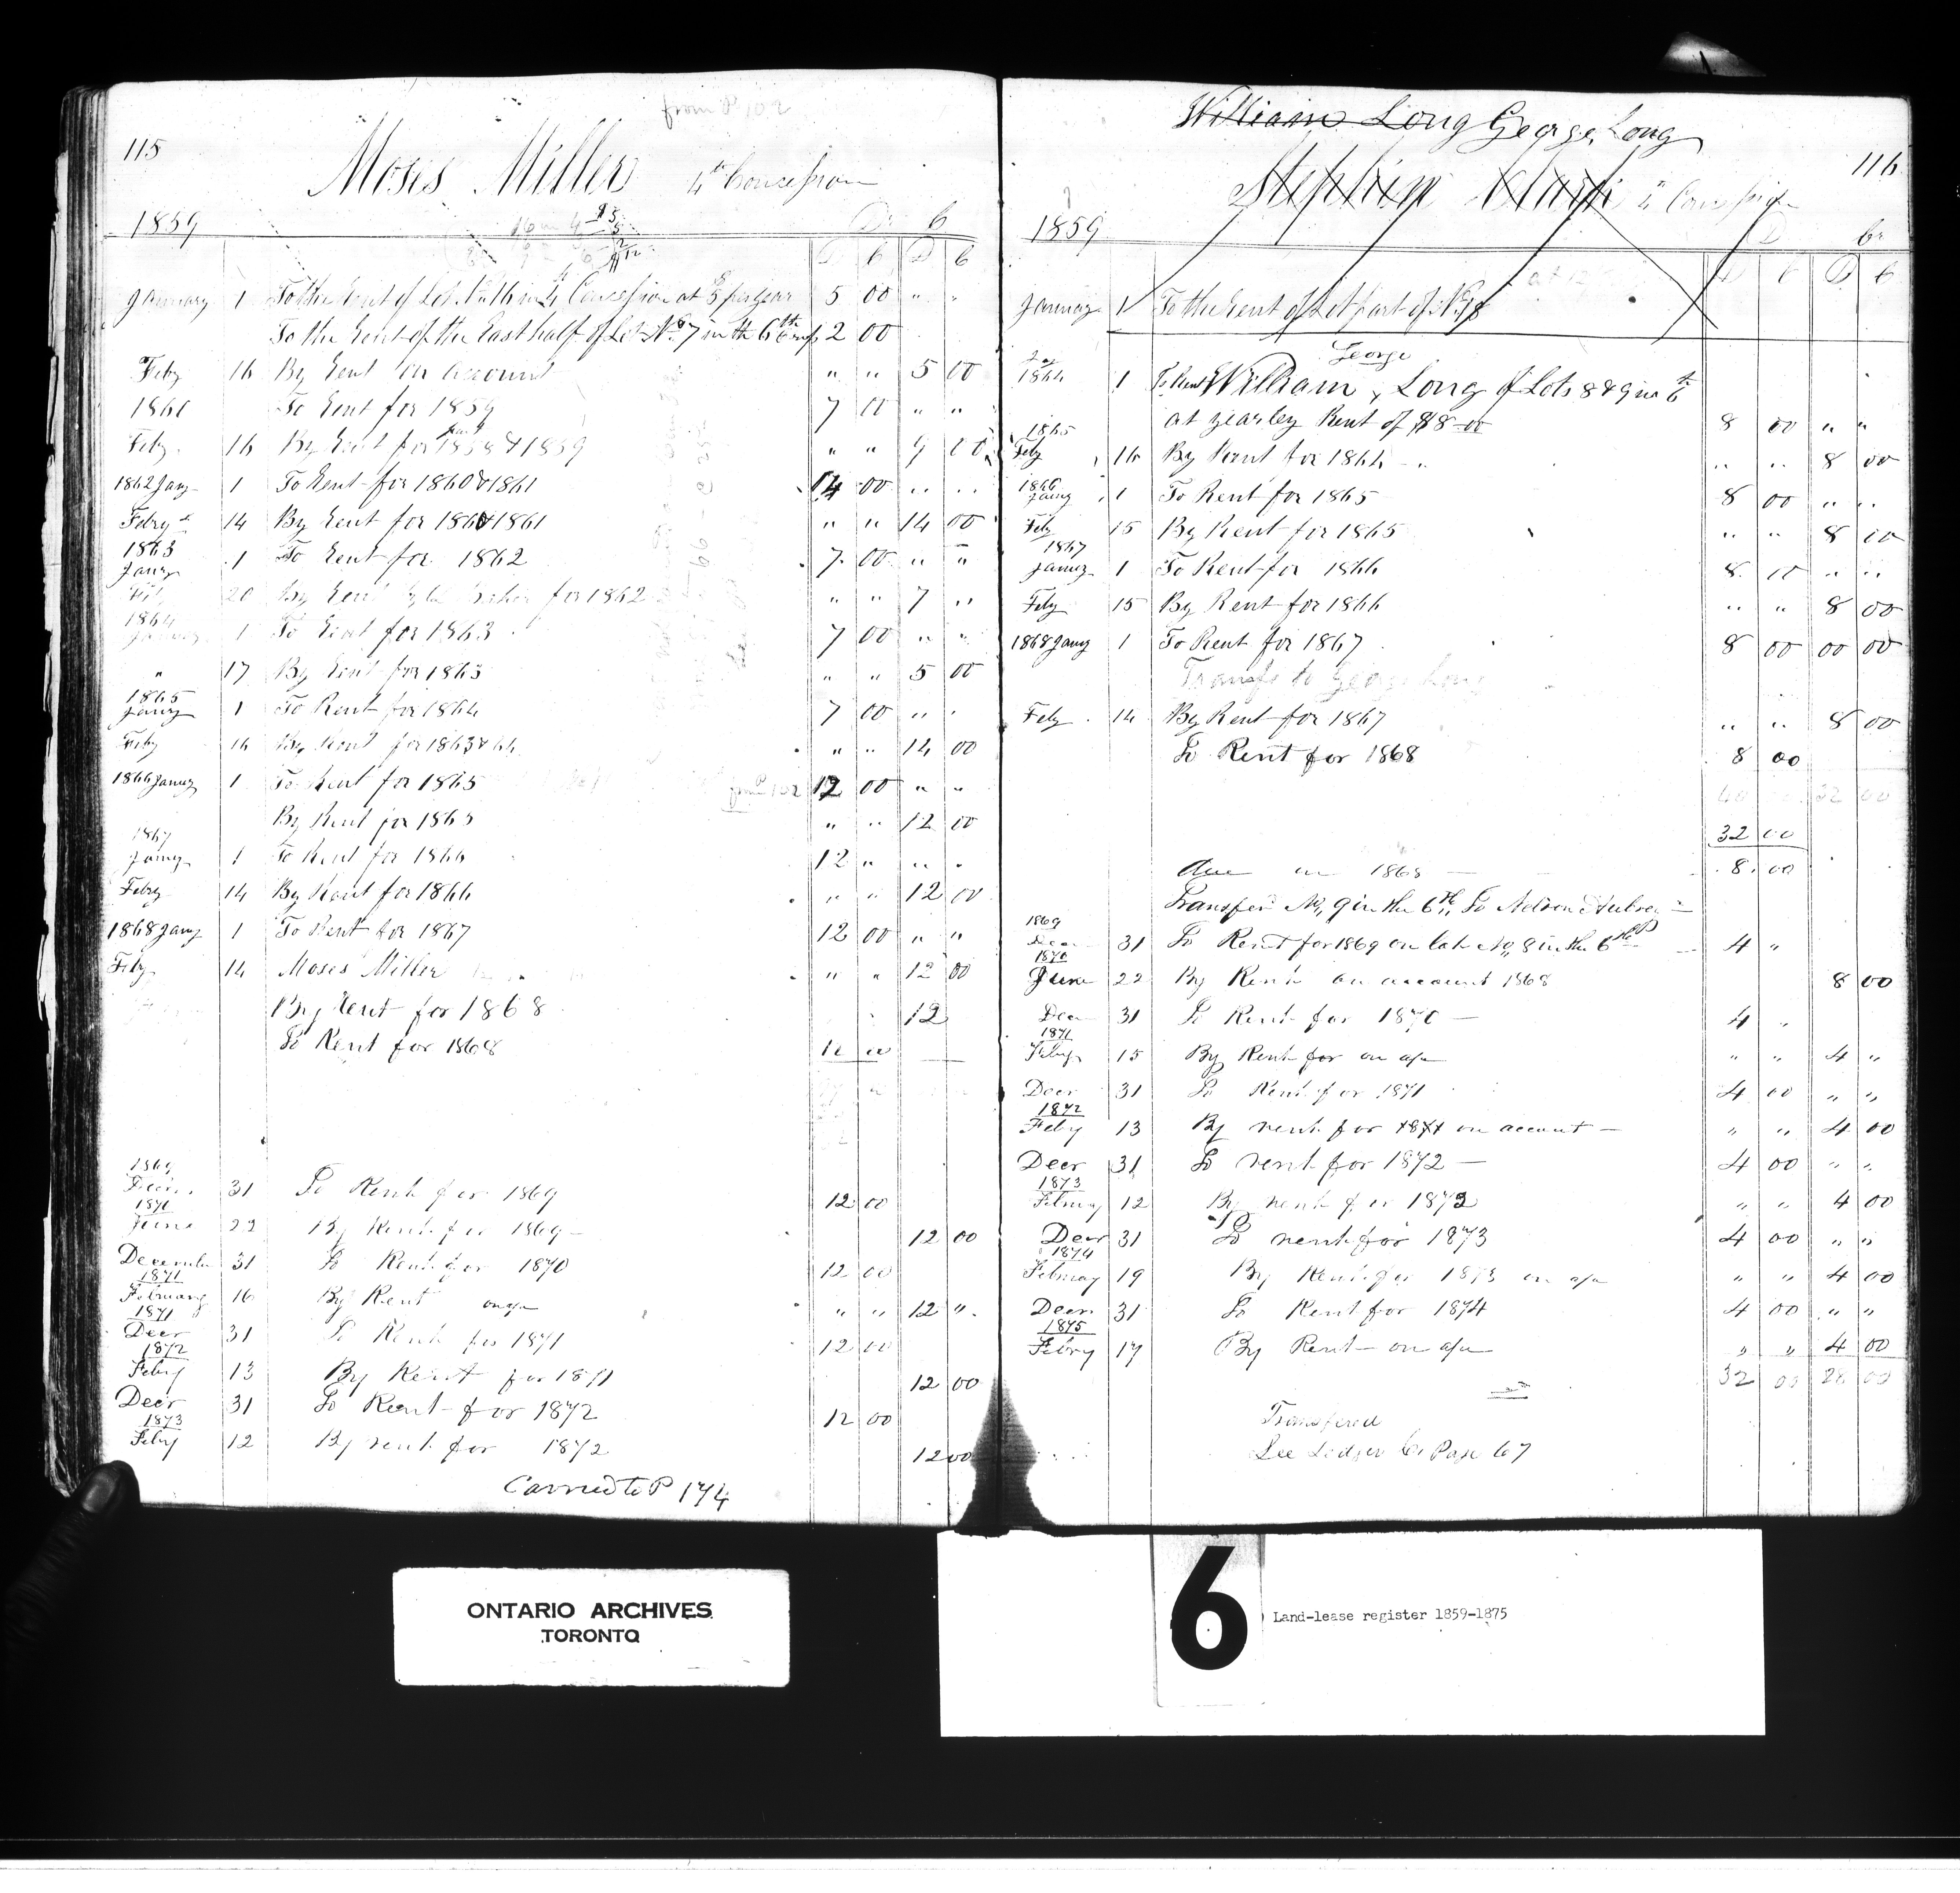 from P 102
115
Moses Miller 4th Concession
1859
Dr C
D C D C
January 1 To the Rent of Lot No 16 in 4 Concession at $5 per year 5 00 " "
To the Rent of the East half of Lot No 7 in th 6th 2 00
Feby 16 By Rent on account " " 5 00
1860 To Rent for 1859 7 00 " "
Feby 16 By Rent for part 1858 & 1859 " " 9 00
1862 Jany 1 To Rent for 1860 & 1861 14 00 " "
Febry 14 By Rent for 1860 & 1861 " " 14 00
1863
Jany 1 To Rent for 1862 7 00 " "
Feb 20 By Rent for 1862 " " 7 "
1864
January 1 To Rent for 1863 7 00 " "
" 17 By Rent for 1863 " " 5 00
1865
Jany 1 To Rent for 1864 7 00 " "
Feby 14 By Rent for 1863 & 64 " " 14 00
1866 Jany 1 To Rent for 1865 from P 102 12 00 " "
By Rent for 1865 " " 12 00
1867
Jany 1 To Rent for 1866 12 " " "
Febry 14 By Rent for 1866 " " 12 00
1868 Jany 1 To Rent for 1867 12 00 " "
Feby 14 Moses Miller " " 12 00
By Rent for 1868 12
To Rent for 1868 12 00
1869
Decr 31 To Rent for 1869 12 00
1870
June 22 By Rent for 1869 12 00
December 31 To Rent for 1870 12 00
1871
February 16 By Rent on a/c " " 12 "
1871
Decr 31 To Rent for 1871 12 00
1872
Feby 13 By Rent for 1871 12 00
Decr 31 To Rent for 1872 12 00
1873
Feby 12 By rent for 1872 12 00
Carried to P 174
William Long George Long
116
Stephen Clark 4 Concession
1859
D Cr
D C D C
January 1 To the Rent of Lot part of No 8
George
Jay
1864 1 To Rent William Long of Lots 8 & 9 in 6th
at yearley Rent of $8 00 8 00 " "
1865
Feby 16 By Rent for 1864 " " 8 00
1866
Jany 1 To Rent for 1865 8 00 " "
Feb 15 By Rent for 1865 " " 8 00
1867
Jany 1 To Rent for 1866 8 00 " "
Feby 15 By Rent for 1866 " " 8 00
1868 Jany 1 To Rent for 1867 8 00 00 00
Transfr to George Long
Feby 14 By Rent for 1867 " " 8 00
To Rent for 1868 8 00
40 32 00
32 00
due in 1868 8 00
Transfer No 9 in the 6th To Nelson
1869
Decr 31 To Rent for 1869 on lot No 8 in the 6th 4 "
1870
June 22 By Rent on account 1868 8 00
Dec 31 To Rent for 1870 4 "
1871
Feby 15 By Rent for on a/c " " 4 "
Decr 31 To Rent for 1871 4 00 " "
1872
Feby 13 By rent for 1871 on account " " 4 00
Decr 31 To rent for 1872 4 00 " "
1873
Febuary 12 By rent for 1872 " " 4 00
Decr 31 To rent for 1873 4 00 " "
1874
Febuary 19 By Rent for 1873 on a/c " " 4 00
Decr 31 To Rent for 1874 4 00 " "
1875
Febry 17 By Rent on a/c " " 4 00
32 00 28 00
Transfered
See Ledger C Page 67
ONTARIO ARCHIVES
TORONTO
6
Land-lease register 1859-1875